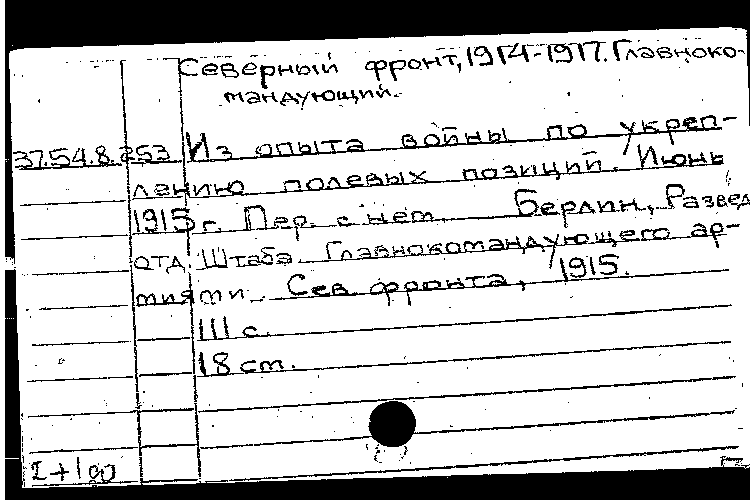 Северный фронт, 1914-1917. Главноко-
мандующий.
37.54.8.253 Из опыта войны по укреп-
лению полевых позиций. Июнь
1915 г. Пер. с нем. Берлин, Развед
отд. Штаба Главнокомандующего ар-
миями Сев. фронта, 1915.
III с.
18 см.